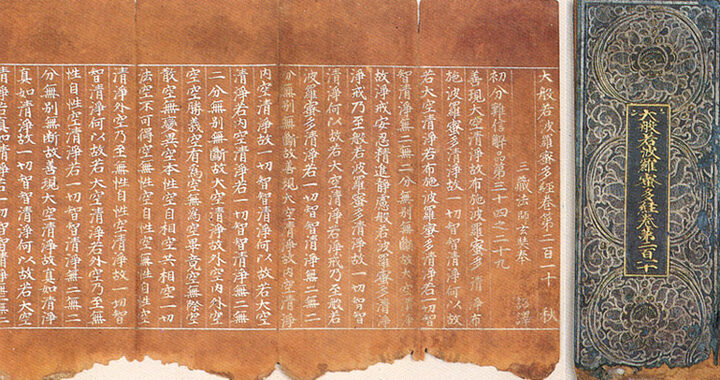 大般若波羅蜜多經卷第二百一十
大般若波羅蜜多經卷第二百一十 秋
三藏法師玄奘奉 詔譯
初分難信解品第三十四之二十九
善現大空清淨故布施波羅蜜多清淨布
施波羅蜜多清淨故一切智智清淨何以故
若大空清淨若布施波羅蜜多清淨若一切智
智清淨無二無二分無別無斷故大空清淨
故淨戒安忍精進靜慮般若波羅蜜多清淨
淨戒乃至般若波羅蜜多清淨故一切智智
清淨何以故若大空清淨若淨戒乃至般若
波羅蜜多清淨若一切智智清淨無二無二
分無別無斷故善現大空清淨故內空清淨
內空清淨故一切智智清淨何以故若大空
清淨若內空清淨若一切智智清淨無二無
二分無別無斷故大空清淨故外空內外空
空空勝義空有為空無為空畢竟空無際空
散空無變異空本性空自相空共相空一切
法空不可得空無性空自性空無性自性空
清淨外空乃至無性自性空清淨故一切智
智清淨何以故若大空清淨若外空乃至無
性自性空清淨若一切智智清淨無二無二
分無別無斷故善現大空清淨故真如清淨
真如清淨故一切智智清淨何以故若大空
清淨若真如清淨若一切智智清淨無二無二